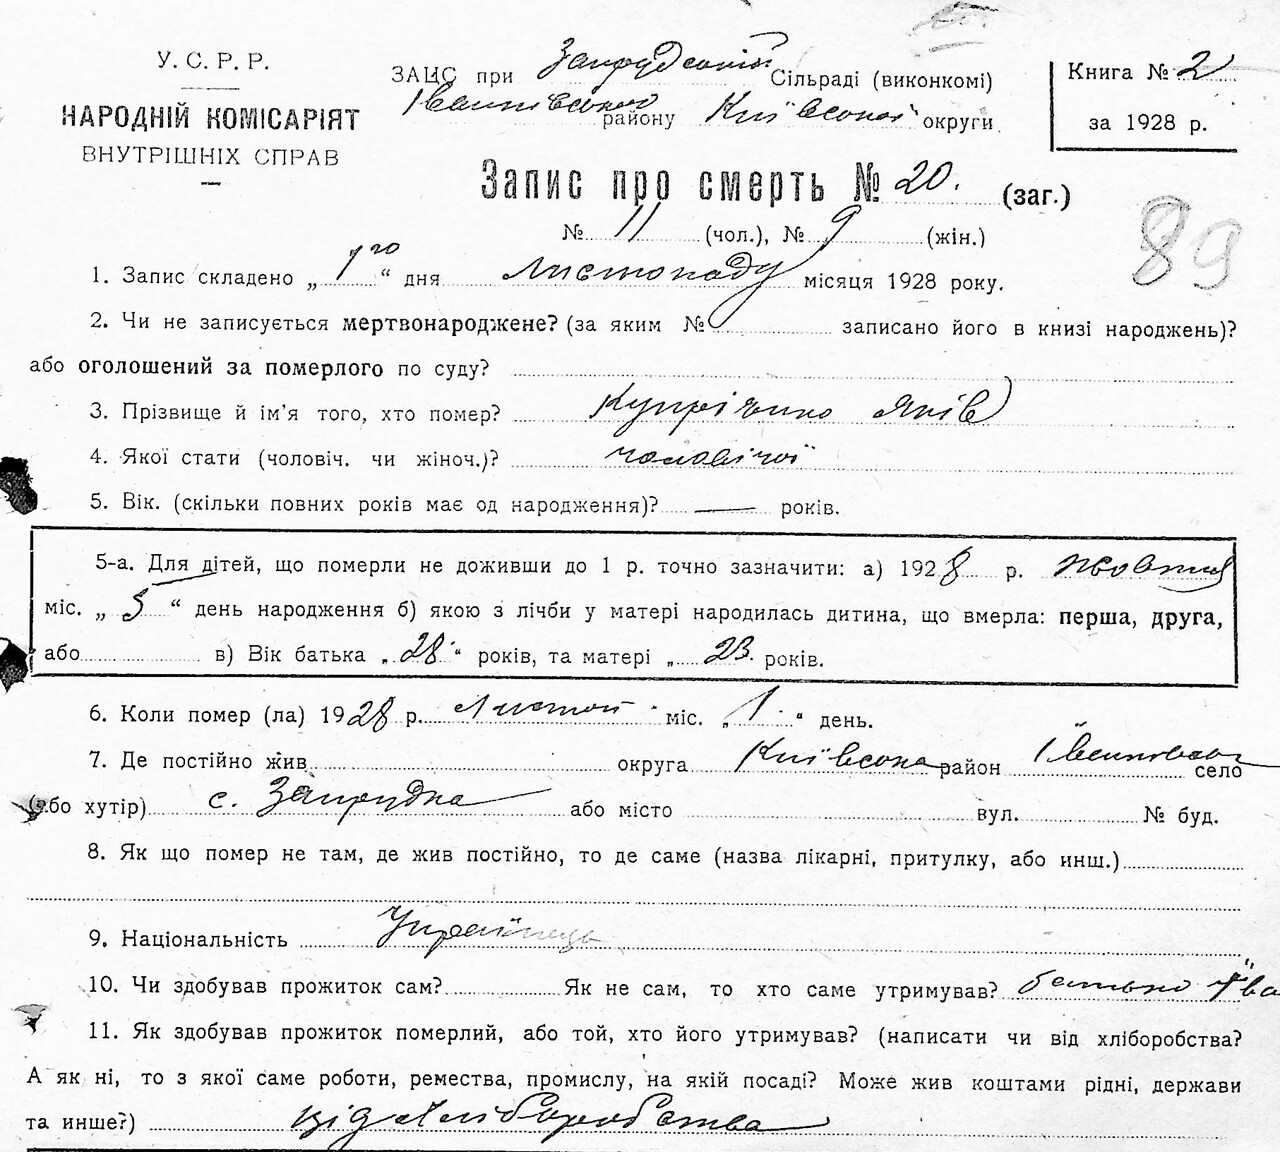 У. С. Р. Р.
НАРОДНІЙ КОМІСАРІЯТ
ВНУТРІШНІХ СПРАВ
ЗАЦС при Запрудський Сільраді (виконкомі)
району Київської округи
Книга № 2
за 1928 р.
Запис про смерть № 20. (заг.)
№ 11 (чол.), № 9 (жін.)
89
1. Запис складено „ 1го “ дня Листопаду місяця 1928 року.
2. Чи не записується мертвонароджене? (за яким № записано його в книзі народжень)?
або оголошений за померлого по суду?
3. Прізвище й ім'я того, хто помер? Яків
4. Якої стати (чоловіч. чи жіноч.)? чоловічої
5. Вік. (скільки повних років має од народження)? — років.
5-а. Для дітей, що померли не доживши до 1 р. точно зазначити: а) 1928 р. жовтня
міс. „ 5 “ день народження б) якою з лічби у матері народилась дитина, що вмерла: перша, друга,
або в) Вік батька „ 28 “ років, та матері „ 23 років.
6. Коли помер (ла) 1928 р. Листоп міс. „ 1 “ день.
7. Де постійно жив округа Київська район село
(або хутір) с. Запрудка або місто вул. № буд.
8. Як що помер не там, де жив постійно, то де саме (назва лікарні, притулку, або инш.)
9. Національність Украйінець
10. Чи здобував прожиток сам? Як не сам, то хто саме утримував? батько
11. Як здобував прожиток померлий, або той, хто його утримував? (написати чи від хліборобства?
А як ні, то з якої саме роботи, ремества, промислу, на якій посаді? Може жив коштами рідні, держави
та инше?) від хліборобства